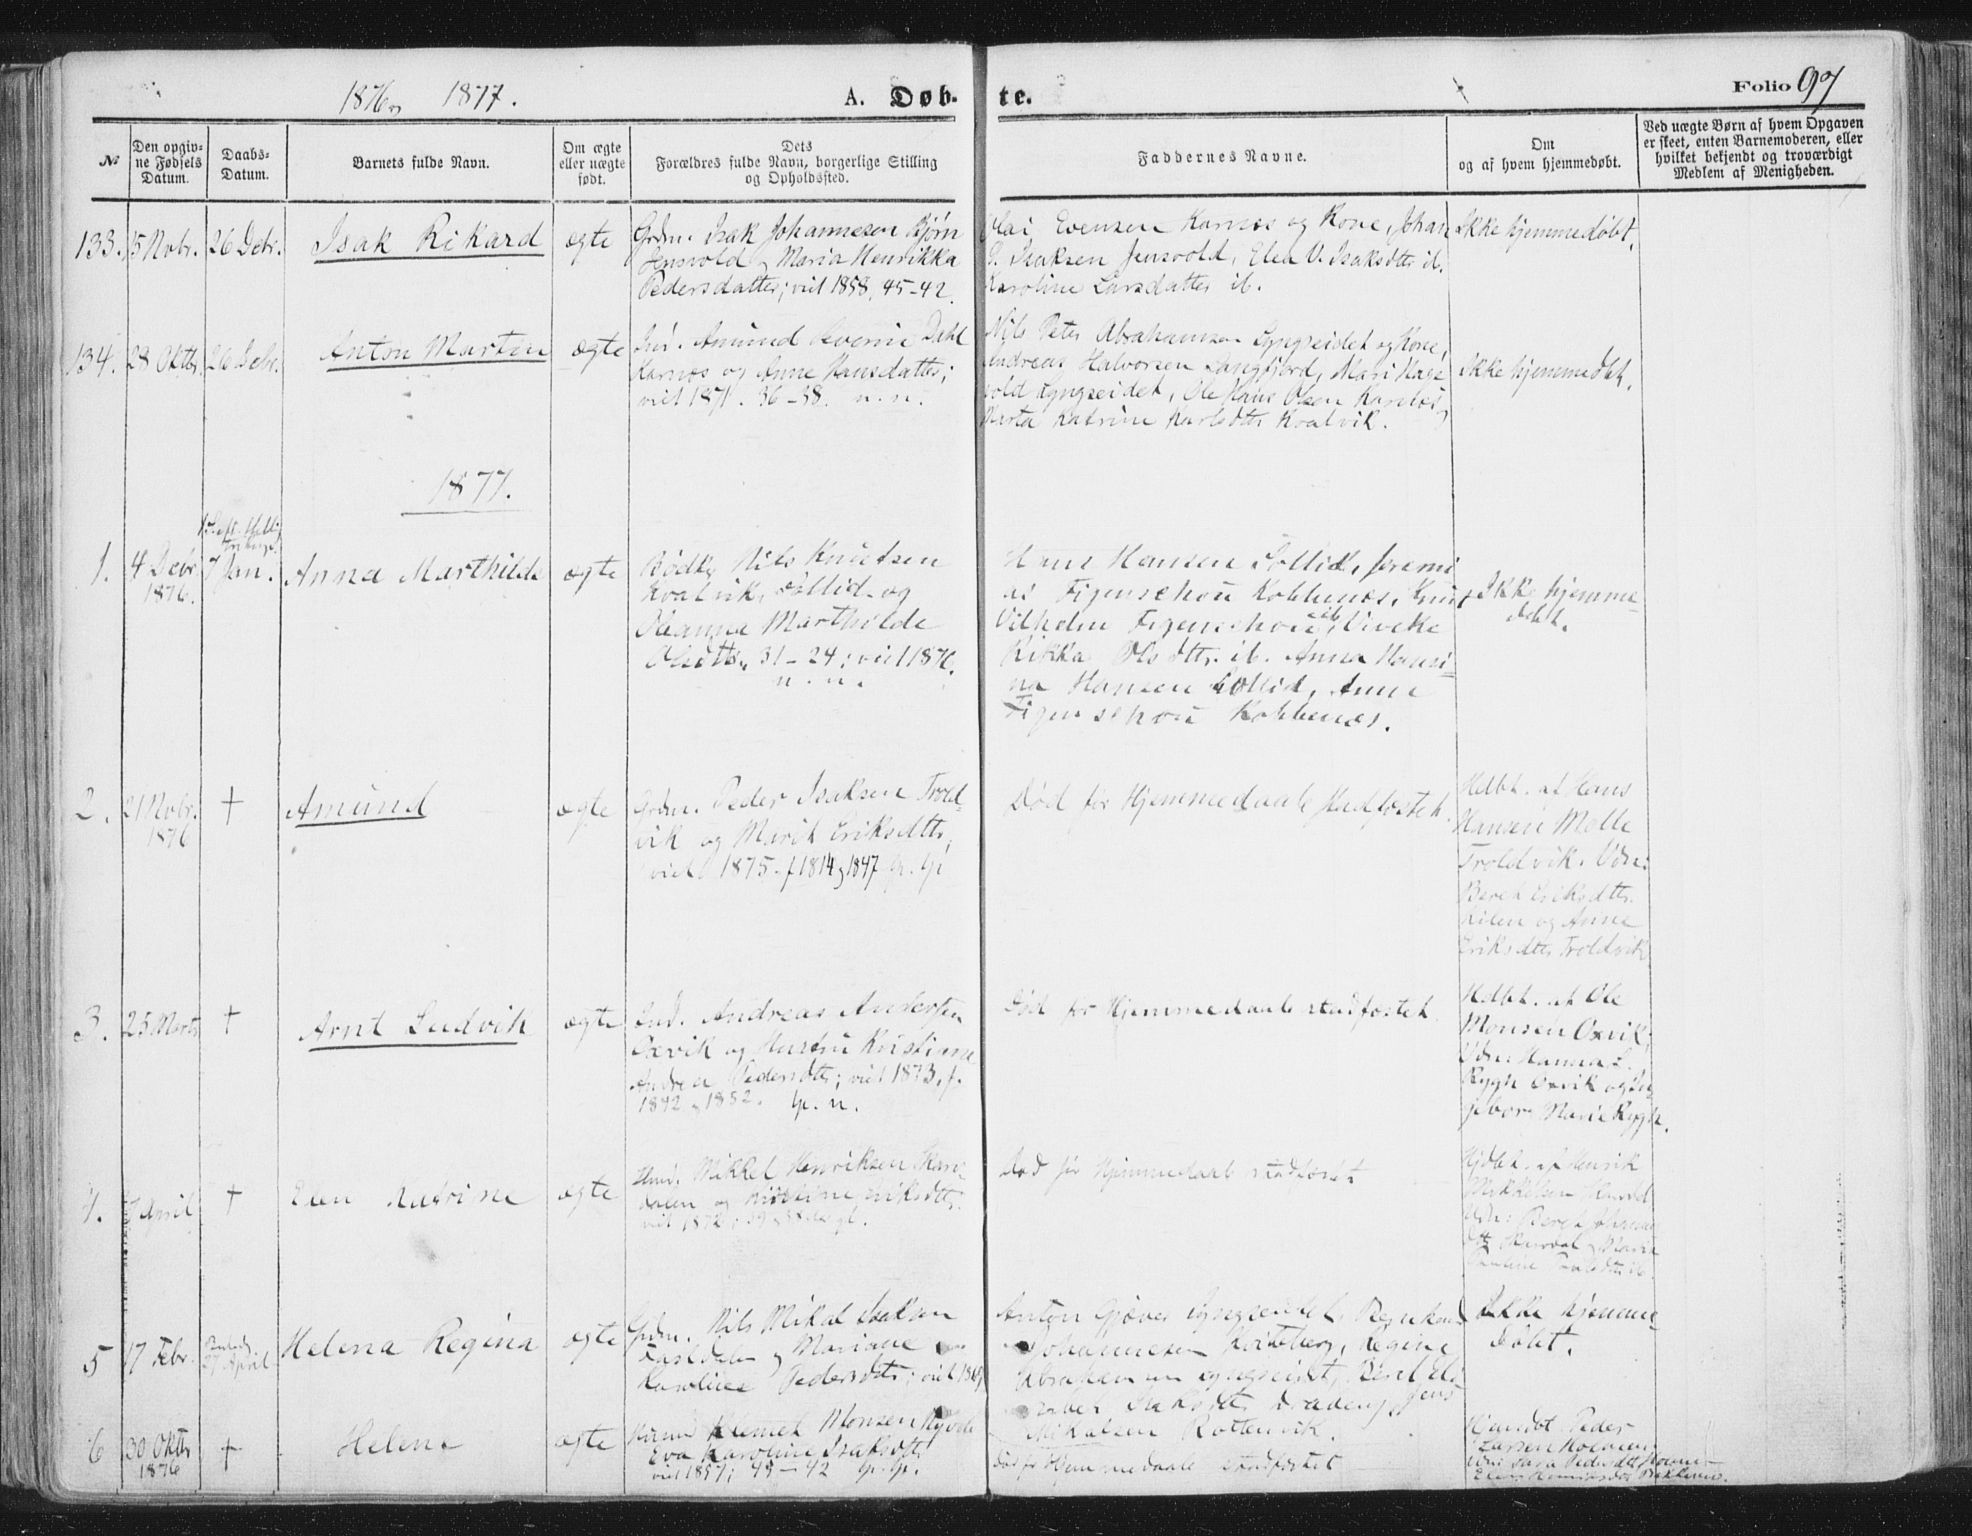 1876 og 1877.
A. Døb- te.
Folio 97
№
Den opgiv-
ne Fødsels
Datum.
Daabs-
Datum.
Barnets fulde Navn.
Om ægte
eller uægte
født.
Dets
Forældres fulde Navn, borgerlige Stilling
og Opholdssted.
Faddernes Navne.
Om
og af hvem hjemmedøbt.
Ved uægte Børn af hvem Opgaven
er skeet, enten Barnemoderen, eller
hvilket bekjendt og troværdigt
Medlem af Menigheden.
133. 15 Novbr. 26 Debr. Isak Rikard ægte
Grdm. Isak Johannesen Bjørn
Jensvold og Maria Henrikka
Pedersdatter; viet 1858. 45-42.
Olai Evensen Karnæs og Kone, Johan
P. Isaksen Jensvold, Elen V. Isaksdttr ib.
Karoline Larsdatter ib.
Ikke hjemmedøbt.
134. 28 Oktbr. 26 Debr. Anton Martin ægte
Ind. Amund Severin Dahl
Karnæs og Anne Hansdatter;
viet 1871. 36-38. n. n.
Nils Peter Abrahamsen Lyngseidet og Kone,
Andreas Halvorsen Langfjord, Mari
Lyngseidet, Ole Hans Olsen Karnæs,
Marta Katrine Karlsdttr Kvalvik.
Ikke hjemmedøbt.
1877.
1. 4 Debr 7 Jan. Anna Marthilde ægte
1876.
Nils Knudsen
Kvalvik, Sollid og
Oleanna Marthilde
Olsdttr. 31-24; viet 1876.
n. n.
Hans Hansen Sollid, Jeremi
as Figenschou Kobbenæs, Knut
Vilhelm Figenschou ib, Viveke
Rikka Olsdttr. ib. Anna Hansi-
na Hansen Sollid, Anne
Figenschou Kobbenæs.
Ikke hjemme-
døbt.
2. 21 Novbr. † Amund ægte
1876
Grdm. Peder Isaksen Trold-
vik og Marit Eriksdttr,
viet 1875. f 1814 og 1847
Død før Hjemmedaab stadfæstet.
Hdbt. af Hans
Hansen Molle
Troldvik. Vdn:
Beret Eriksdttr.
Kilen og Anne
Eriksdttr Troldvik
3. 25 Marts † Arnt Ludvik ægte
Ind. Andreas Andersen
Oxvik og Hustru Kristianne
Andrea Pedersdttr; viet 1873. f.
1842 og 1852.
Død før Hjemmedaab stadfæstet
Hdbt. af Ole
Monsen Oxvik,
Vdn: Hanna L.
Rygh Oxvik og In-
geborg Marie Rygh.
4. 7 April † Elen Katrine ægte
Ind. Mikkel Henriksen Skar-
dalen og Kirstine Eriksdttr.
viet 1872;
Død før Hjemmedaab stadfæstet
Hjdbt. af Henrik
Mikkelsen
Vdn: Beret
5 17 Febr. 27 April Helena Regina ægte
Grdm. Nils Mikal Isaksen
og Mariane
Karoline Pedersdttr; viet 1869
Anton Gjæver Lyngseidet,
Johannesen Kviteberg, Regine
Abrahamsen Lyngseidet, Beret
Isaksdttr Jens
Mikalsen Rottenvik.
Ikke hjemme-
døbt.
6 30 Oktbr † Helene ægte
1876
Klemet Monsen
Eva Karoline Isaksdttr
viet 1857; 43-42
Død før Hjemmedaab stadfæstet
Hjemdbt Peder
Larsen